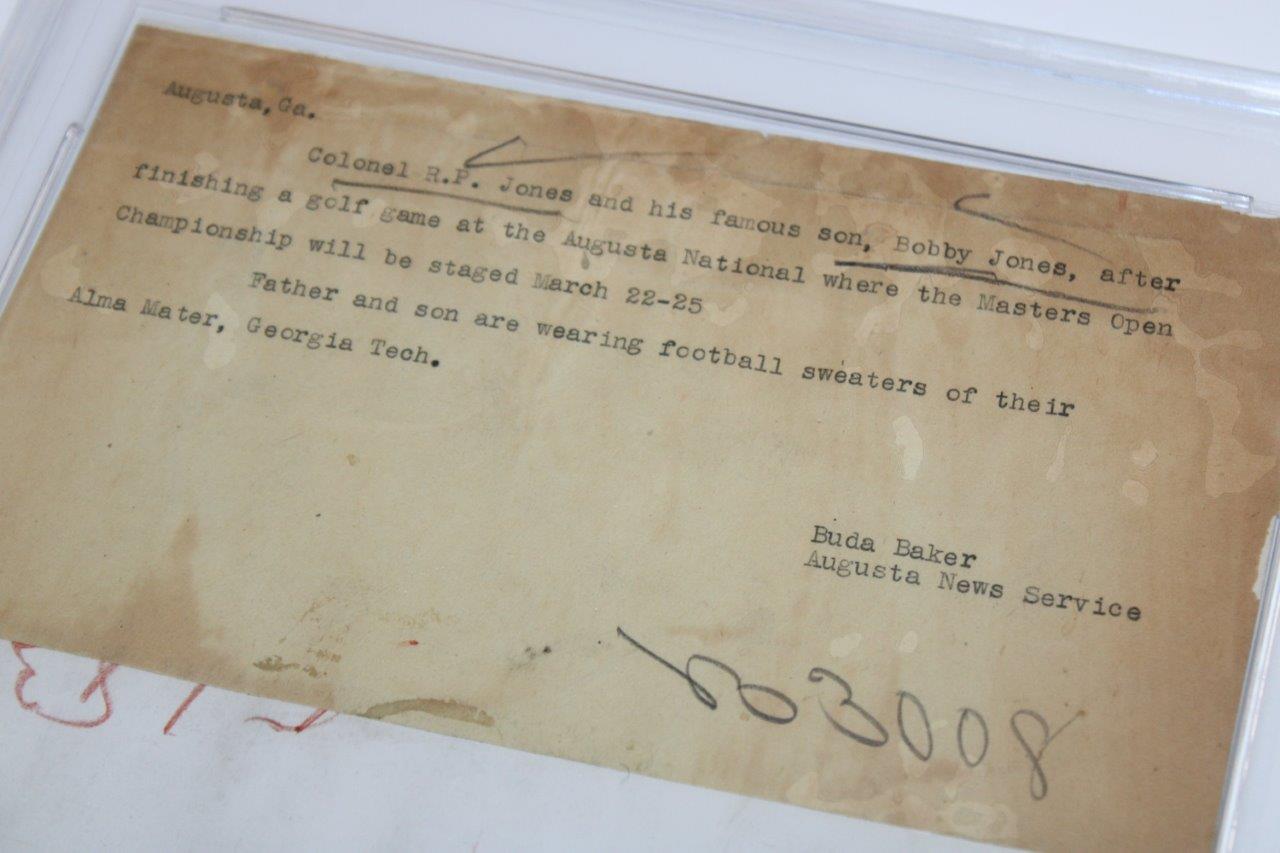 Augusta, Ga.
Colonel R.P. Jones and his famous son, Bobby Jones, after
finishing a golf game at the Augusta National where the Masters Open
Championship will be staged March 22-25
Father and son are wearing football sweaters of their
Alma Mater, Georgia Tech.
Buda Baker
Augusta News Service